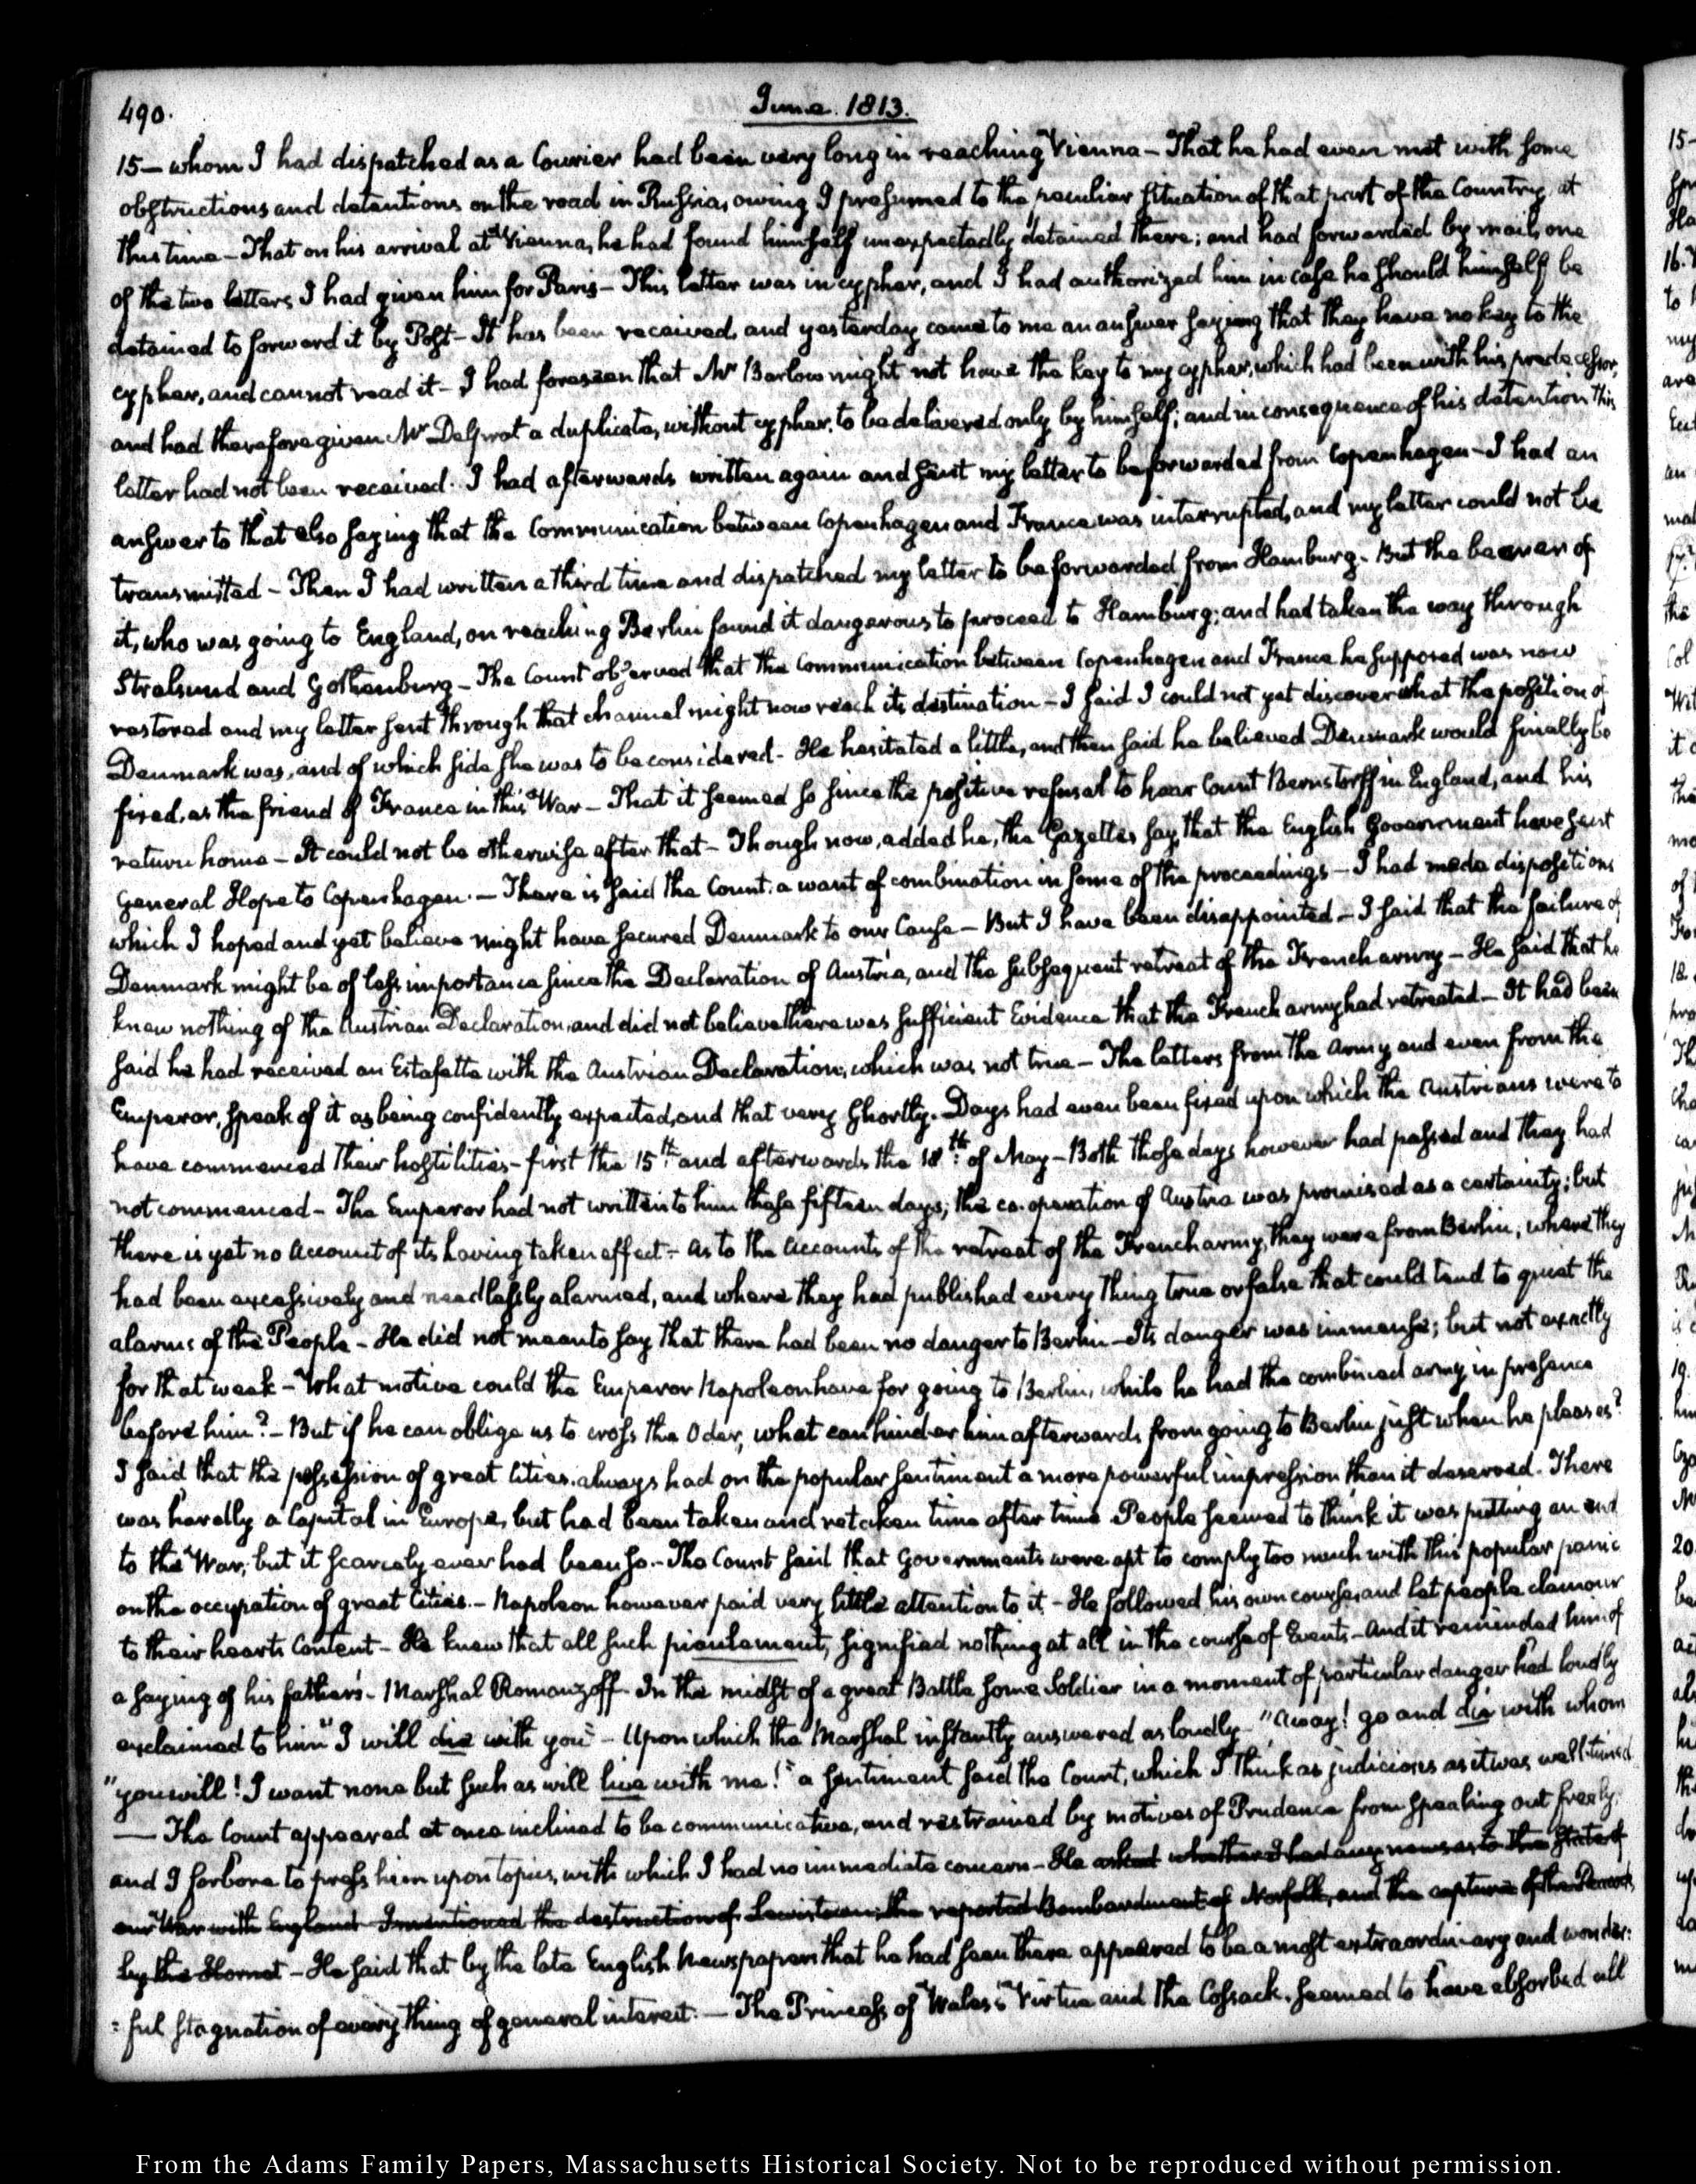 490.
June. 1813.
15— whom I had dispatched as a Courier had been very long in reaching Vienna— That he had even met with some
obstructions and detentions on the road in Russia, owing I presumed to the peculiar situation of that part of the Country, at
this time— That on his arrival at Vienna, he had found himself unexpectedly detained there; and had forwarded by mail, one
of the two letters I had given him for Paris— This letter was in cypher, and I had authorized him in case he should himself be
detained to forward it by Post— It has been received, and yesterday came to me an answer saying that they have no key to the
cypher, and cannot read it— I had foreseen that Mr Barlow might not have the key to my cypher, which had been with his predecessor,
and had therefore given Mr Delprat a duplicate, without cypher, to be delivered only by himself; and in consequence of his detention this
letter had not been received. I had afterwards written again and sent my letter to be forwarded from Copenhagen— I had an
answer to that also saying that the Communication between Copenhagen and France was interrupted, and my letter could not be
transmitted— Then I had written a third time and dispatched my letter to be forwarded from Hamburg. But the bearer of
it, who was going to England, on reaching Berlin found it dangerous to proceed to Hamburg; and had taken the way through
Stralsund and Gothenburg— The Count observed that the Communication between Copenhagen and France he supposed was now
restored and my letter sent through that channel might now reach its destination— I said I could not yet discover what the position of
Denmark was, and of which side she was to be considered— He hesitated a little, and then said he believed Denmark would finally be
fixed, as the friend of France in this War— That it seemed so since the positive refusal to hear Count Bernstorff in England, and his
return home— It could not be otherwise after that— Though now, added he, the Gazettes say, that the English Government have sent
General Hope to Copenhagen.— There is said the Count, a want of combination in some of the proceedings— I had made dispositions
which I hoped and yet believe might have secured Denmark to our Cause— But I have been disappointed— I said that the failure of
Denmark might be of less importance since the Declaration of Austria, and the subsequent retreat of the French army— He said that he
knew nothing of the Austrian Declaration, and did not believe there was sufficient Evidence that the French army had retreated— It had been
said he had received an Estafette with the Austrian Declaration, which was not true— The letters from the Army and even from the
Emperor, speak of it as being confidently expected, and that very shortly. Days had even been fixed upon which the Austrians were to
have commenced their hostilities— first the 15th. and afterwards the 18th. of May— Both those days however had passed and they had
not commenced— The Emperor had not written to him these fifteen days; the co-operation of Austria was promised as a certainty; but
there is yet no Account of its having taken effect— As to the Accounts of the retreat of the French army, they were from Berlin, where they
had been excessively and needlessly alarmed, and where they had published every thing true or false that could tend to quiet the
alarms of the People— He did not mean to say that there had been no danger to Berlin— Its danger was immense; but not exactly
for that week— What motive could the Emperor Napoleon have for going to Berlin, while he had the combined army in presence
before him?— But if he can oblige us to cross the Oder, what can hinder him afterwards from going to Berlin just when he pleases?
I said that the possession of great Cities, always had on the popular sentiment a more powerful impression than it deserved. There
was hardly a Capital in Europe, but had been taken and retaken time after time. People seemed to think it was putting an end
to the War; but it scarcely ever had been so.— The Count said that Governments were apt to comply too much with this popular panic
on the occupation of great Cities.— Napoleon however paid very little attention to it— He followed his own course, and let people clamour
to their hearts Content— He knew that all such piaulement, signified nothing at all in the course of Events— And it reminded him of
a saying of his father's— Marshal Romanzoff— In the midst of a great Battle some Soldier in a moment of particular danger had loudly
exclaimed to him "I will die with you"— Upon which the Marshal instantly answered as loudly— "Away! go and die with whom
"you will! I want none but such as will live with me!" a sentiment said the Count, which I think as judicious as it was well-timed.
— The Count appeared at once inclined to be communicative, and restrained by motives of Prudence from speaking out freely;
and I forbore to press him upon topics, with which I had no immediate concern— He asked whether I had any news as to the State of
our War with England— I mentioned the destruction of Lewistown, the reported Bombardment of Norfolk, and the capture of the Peacock,
by the Hornet— He said that by the late English Newspapers that he had seen there appeared to be a most extraordinary and wonder:
=ful stagnation of every thing of general interest.— The Princess of Wales's Virtue and the Cossack, seemed to have absorbed all
From the Adams Family Papers, Massachusetts Historical Society. Not to be reproduced without permission.